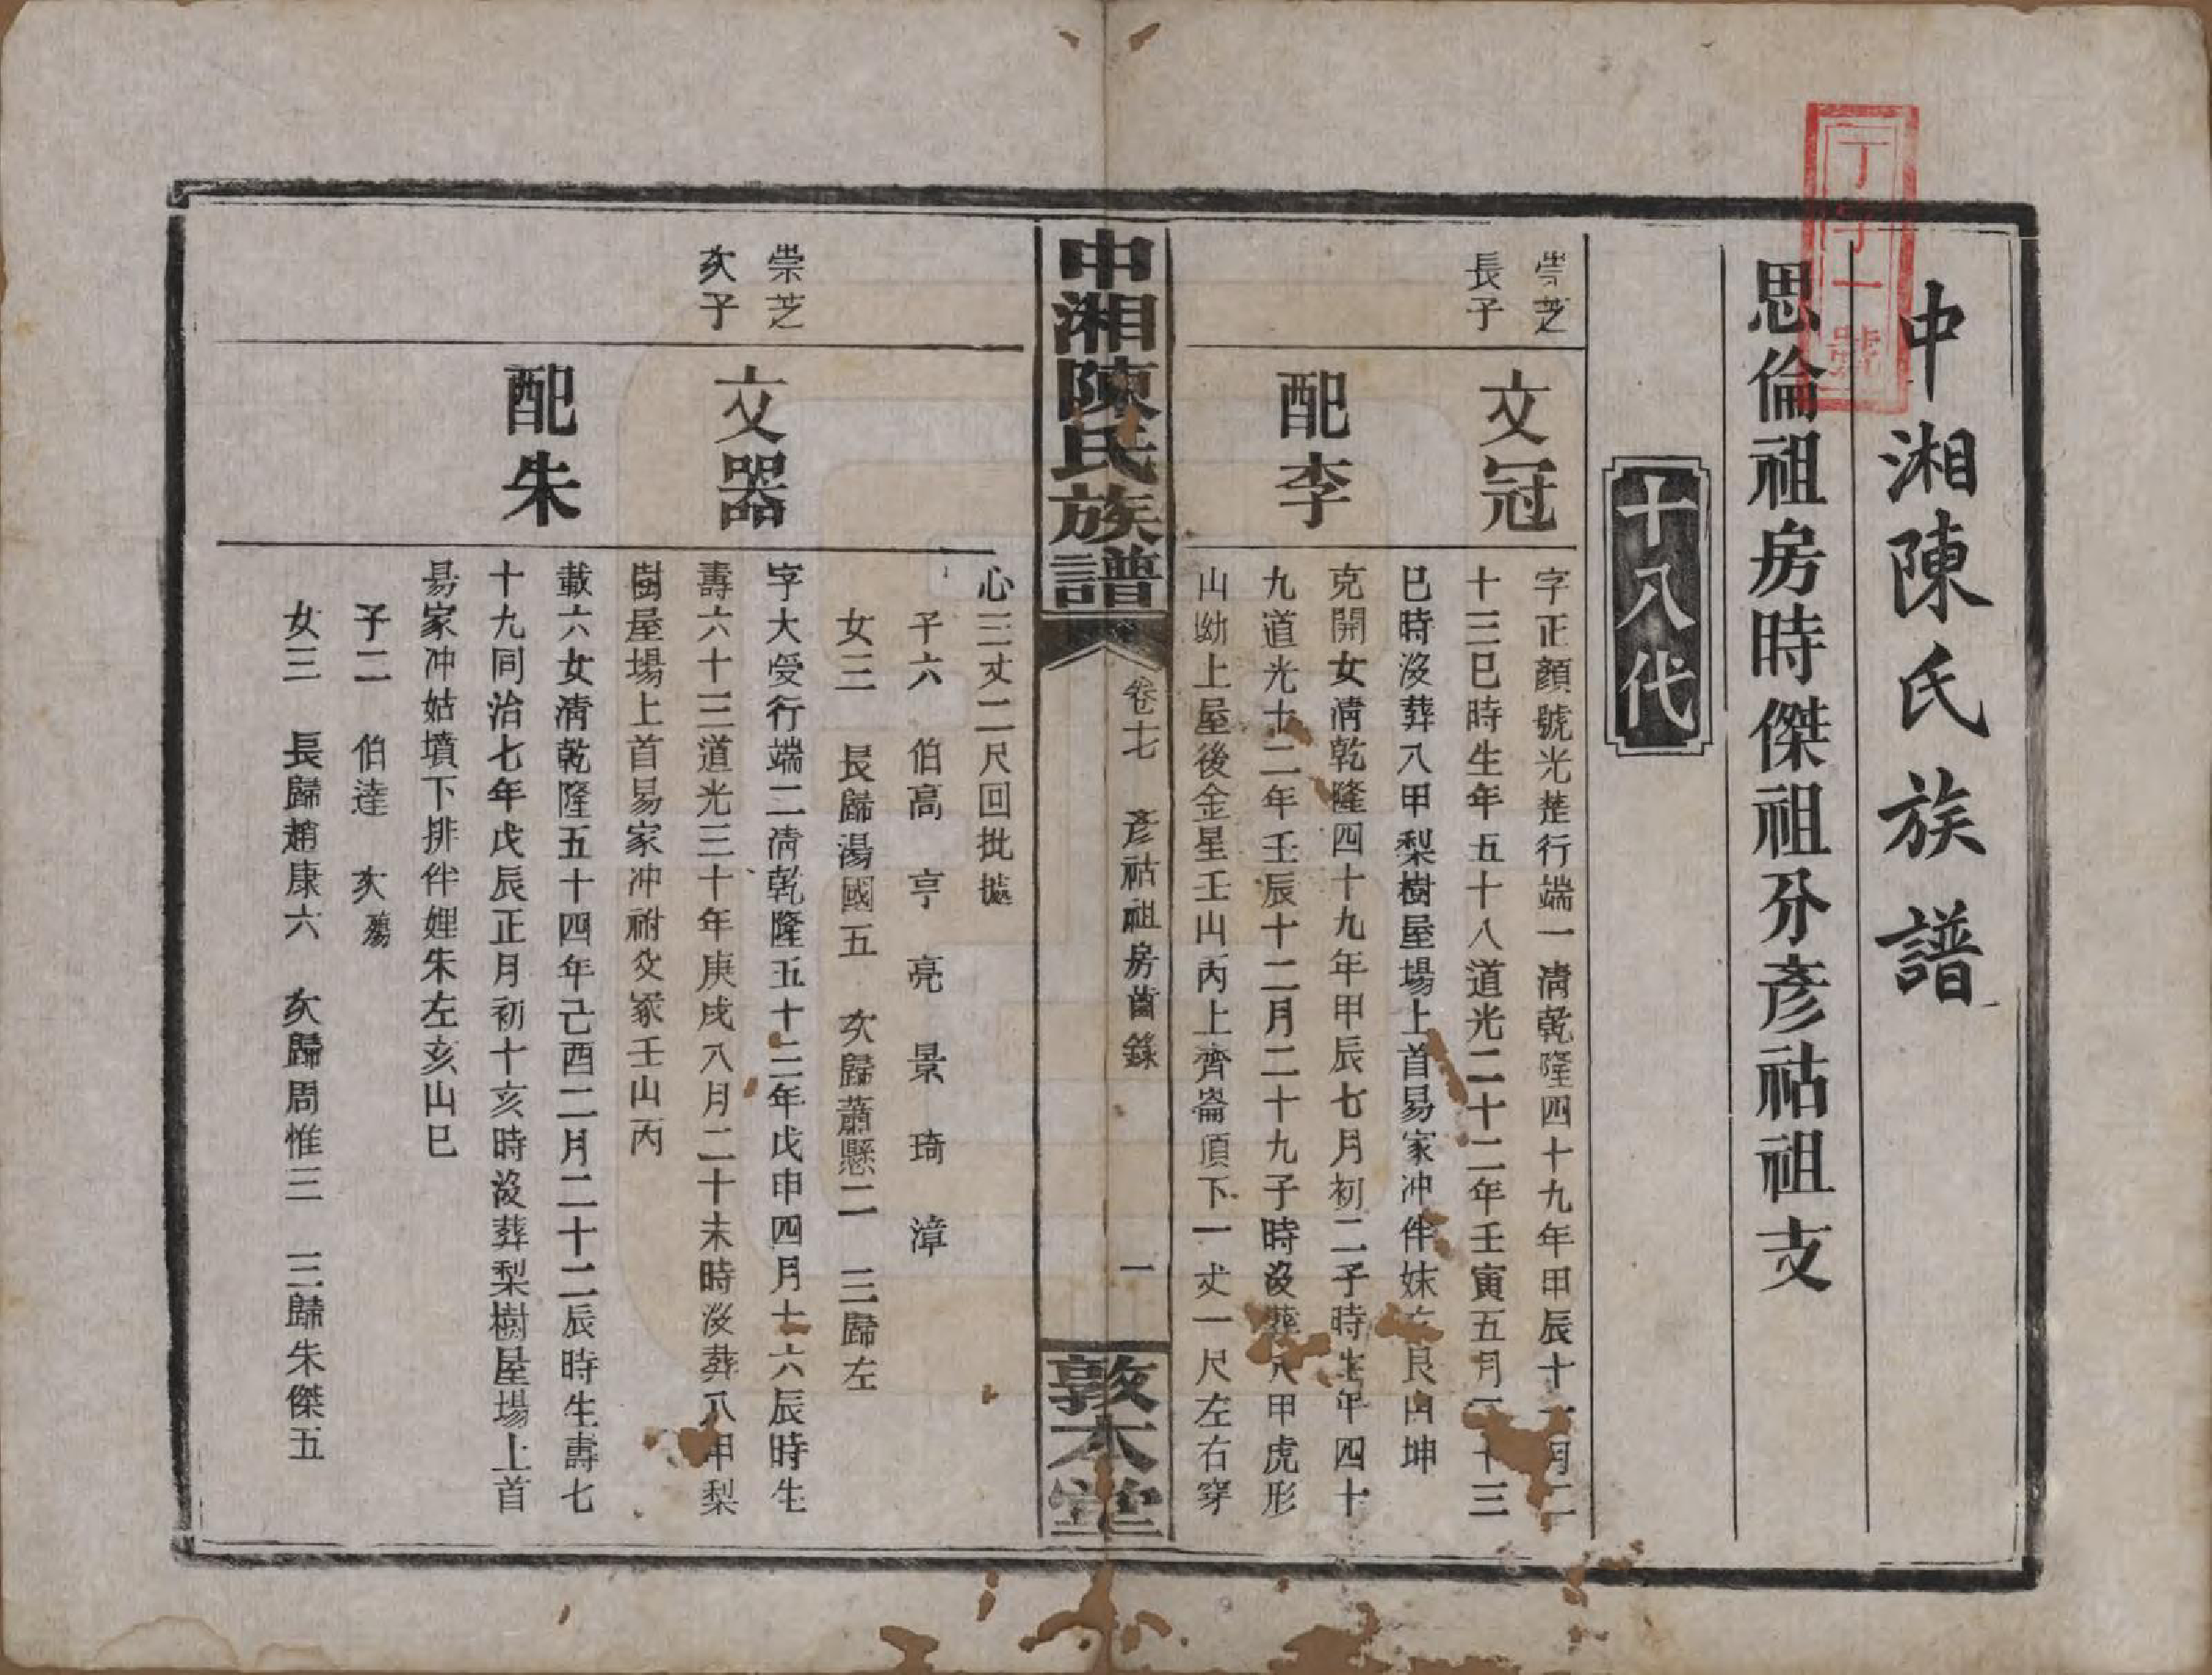 丁字一號
中湘陳氏族譜
思倫祖房時傑祖分彥祜祖支
十八代
崇芝
長子
文冠
字正顏號光楚行端一清乾隆四十九年甲辰十一月二
十三巳時生年五十八道光二十二年壬寅五月二十三
巳時沒葬八甲梨樹屋場上首易家冲伴妹左艮山坤
配李
克開女清乾隆四十九年甲辰七月初二子時生年四十
九道光十二年壬辰十二月二十九子時沒葬八甲虎形
山坳上屋後金星壬山丙上齊崙頂下一丈一尺左右穿
中湘陳氏族譜
卷十七
彥祜祖房齒錄
一
敦本堂
心三丈二尺回批據
子六 伯高 亨 亮 景 琦 漳
女三 長歸湯國五 次歸蕭懸二 三歸左
崇芝
次子
文器
字大受行端二清乾隆五十三年戊申四月十六辰時生
壽六十三道光三十年庚戌八月二十未時沒葬八甲梨
樹屋場上首易家冲祔父冢壬山丙
配朱
載六女清乾隆五十四年己酉二月二十二辰時生壽七
十九同治七年戊辰正月初十亥時沒葬梨樹屋場上首
易家冲姑墳下排伴娌朱左亥山巳
子二 伯達 次殤
女三 長歸趙康六 次歸周惟三 三歸朱傑五